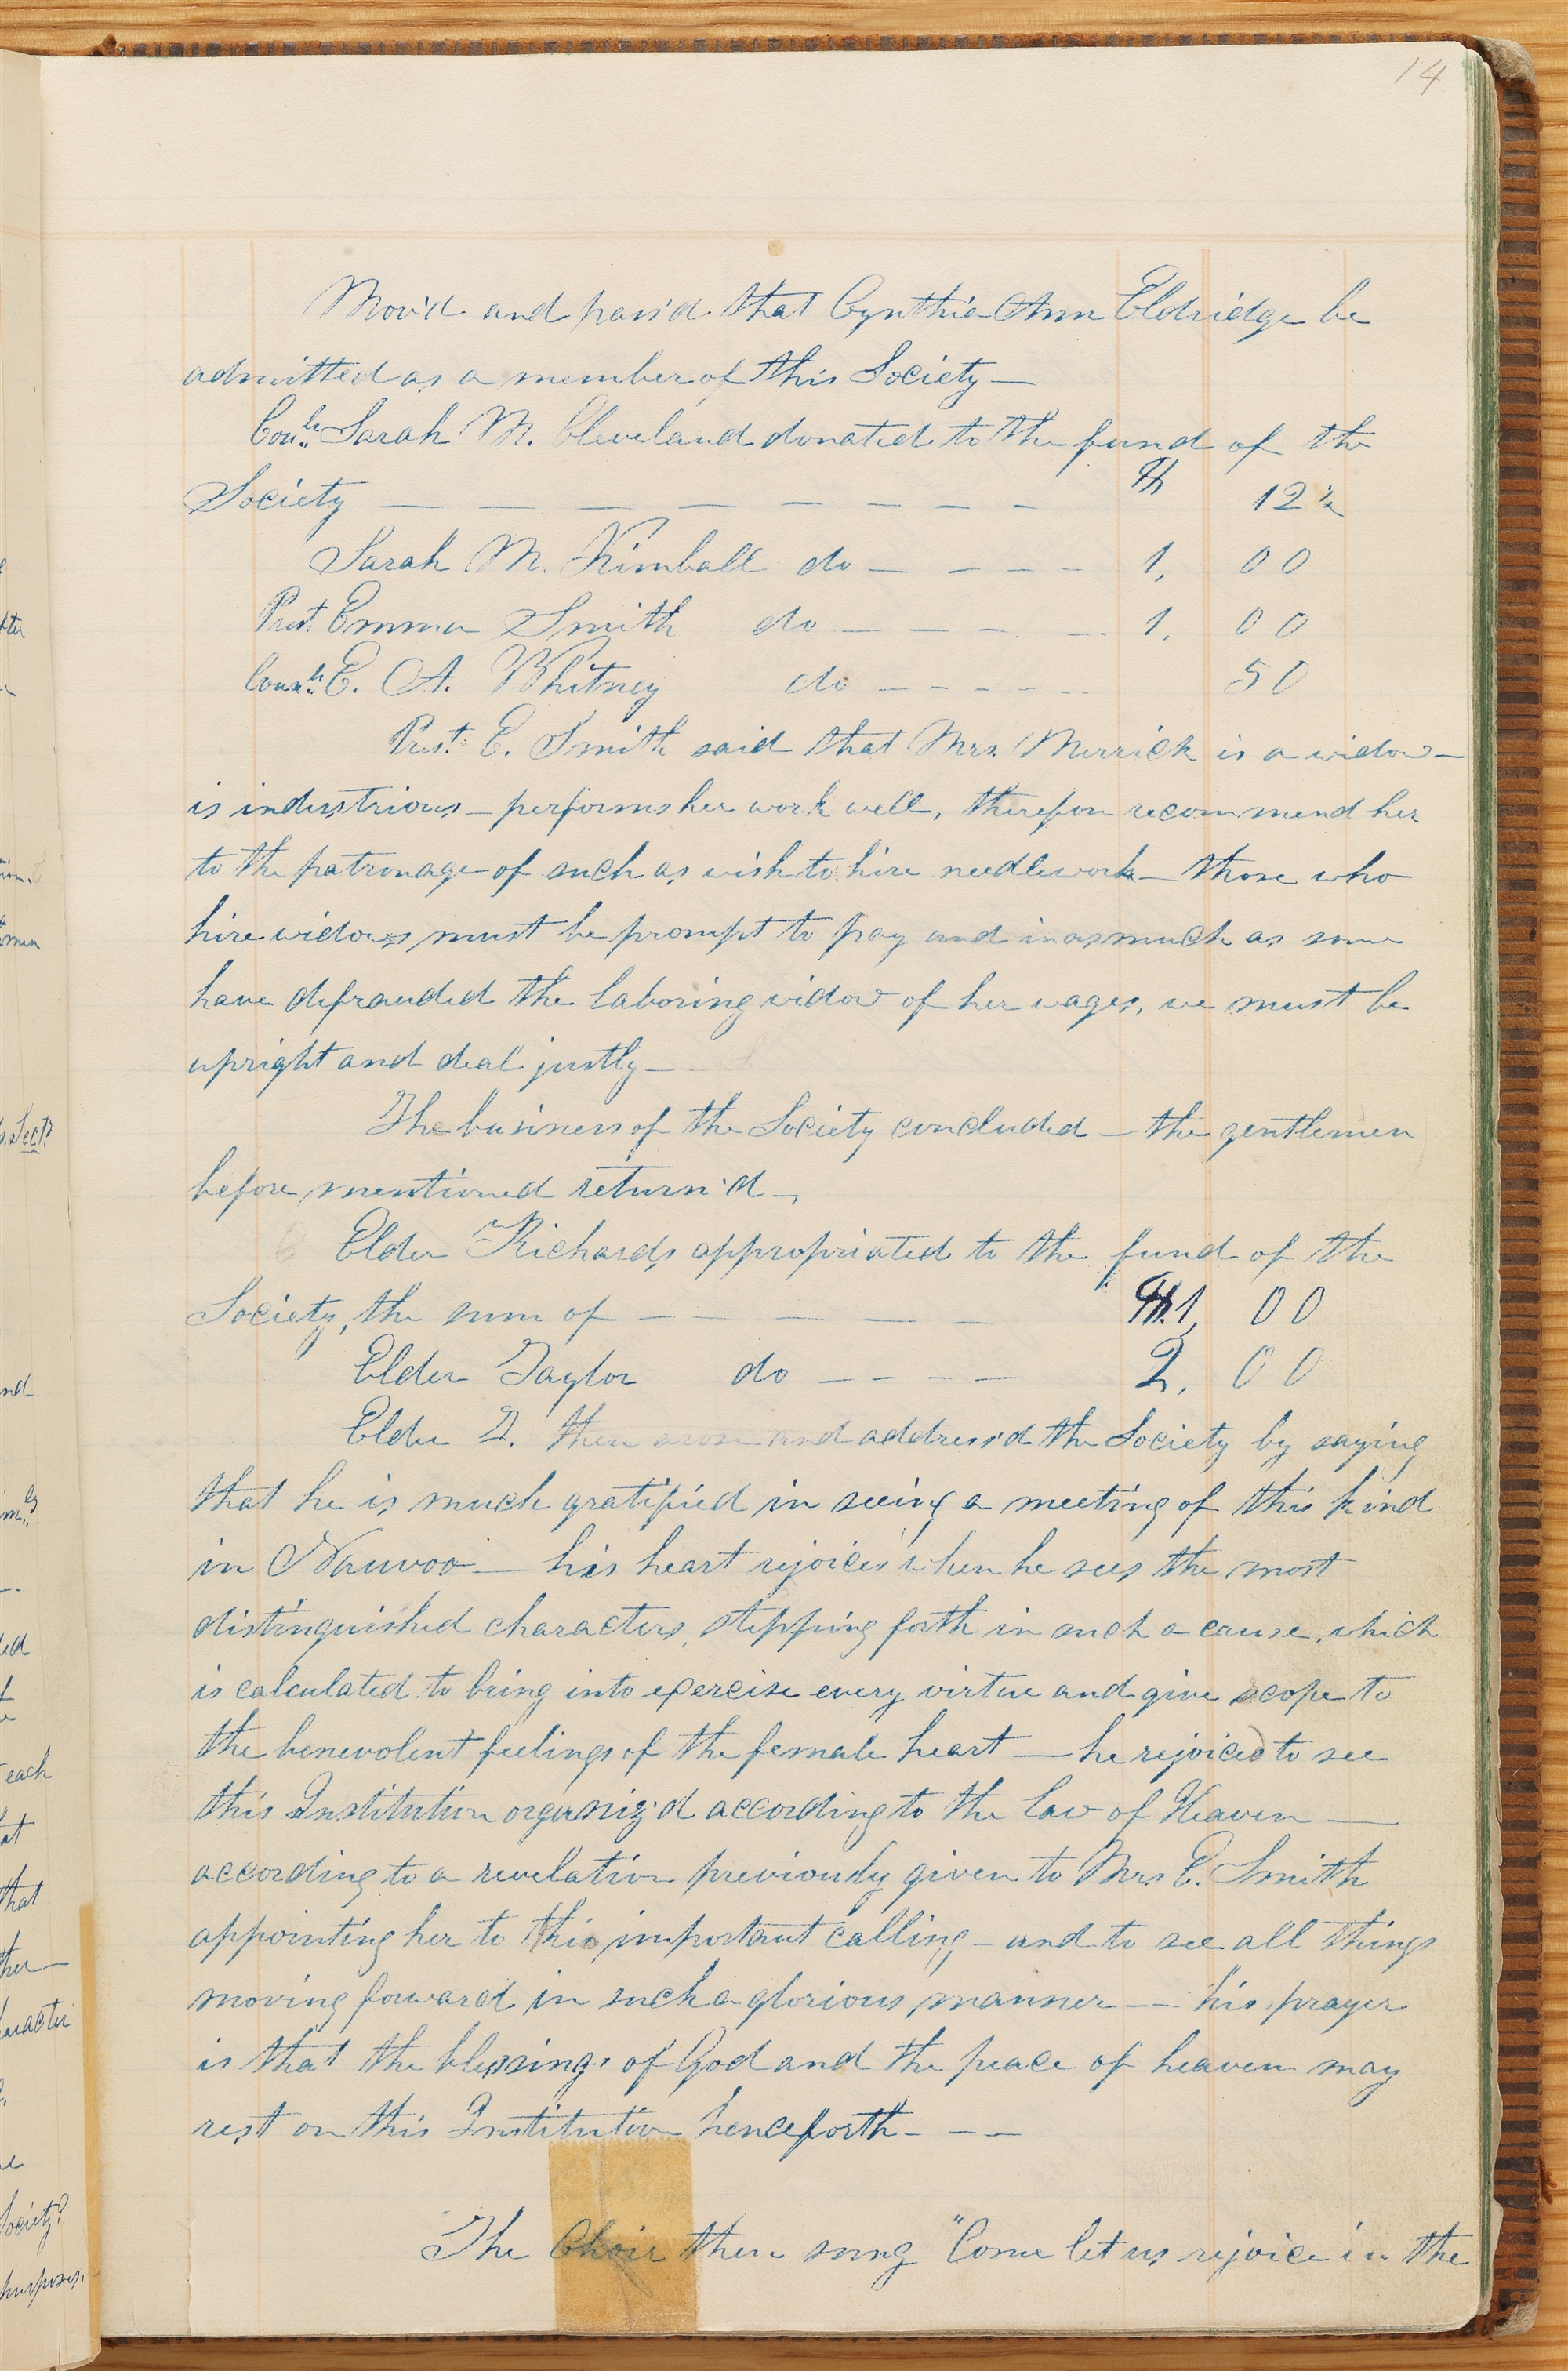 14
Mov'd and pass'd that Cynthia Ann Eldridge be
admitted as a member of this Society —
Coun.lr Sarah M. Cleveland donated to the fund of the
Society — — — — — — — — — $ 12½
Sarah M. Kimball do — — — — 1, 00
Prest. Emma Smith do — — — — — 1, 00
Coun.lr E. A. Whitney do — — — — — 50
Prest. E. Smith said that Mrs. Merrick is a widow —
is industrious — performs her work well, therefore recommend her
to the patronage of such as wish to hire needlework — those who
hire widows must be prompt to pay and inasmuch as some
have defrauded the laboring widow of her wages, we must be
upright and deal justly —
The business of the Society concluded — the gentlemen
before mentioned return'd —
Elder Richards appropriated to the fund of the
Society, the sum of — — — — — — $1, 00
Elder Taylor do — — — — 2, 00
Elder T. then arose and address'd the Society by saying
that he is much gratified in seeing a meeting of this kind
in Nauvoo — his heart rejoices when he sees the most
distinguished characters, stepping forth in such a cause, which
is calculated to bring into exercise every virtue and give scope to
the benevolent feelings of the female heart — he rejoices to see
this Institution organiz'd according to the law of Heaven —
according to a revelation previously given to Mrs. E. Smith
appointing her to this important calling — and to see all things
moving forward in such a glorious manner — his prayer
is that the blessings of God and the peace of heaven may
rest on this Institution henceforth — — —
The Choir then sung "Come let us rejoice in the
ter
men
Sect?
nd
ed
each
at
that
ther —
haracter
Society?
purposes.